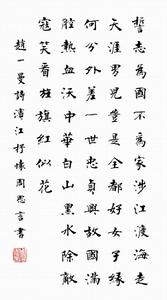 誓志為國不為家涉江渡海走
天涯男兒豈是全都好女子緣
何分外差一世忠貞興故國滿
腔熱血沃中華白山黑水除敵
寇笑看旌旗紅似花
趙一曼詩濱江抒懷周思言書